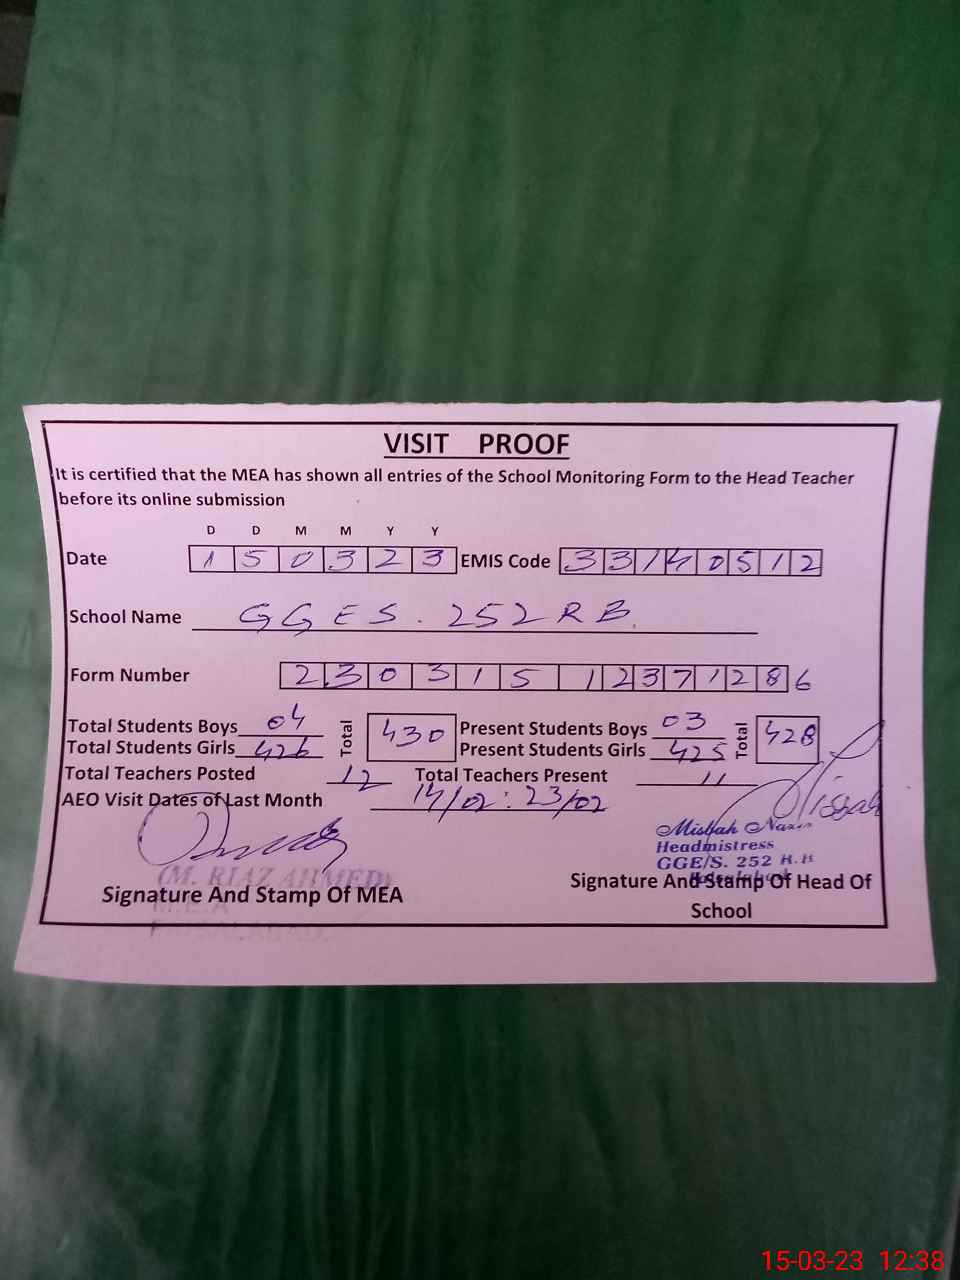 VISIT PROOF
It is certified that the MEA has shown all entries of the School Monitoring Form to the Head Teacher
before its online submission
D D M M Y Y
Date 1 5 0 3 2 3 EMIS Code 3 3 1 4 0 5 1 2
School Name GGES. 252 RB.
Form Number 2 3 0 3 1 5 1 2 3 7 1 2 8 6
Total Students Boys 04 Total 430 Present Students Boys 03 Total 428
Total Students Girls 426 Present Students Girls 425
Total Teachers Posted 12 Total Teachers Present 11
AEO Visit Dates of Last Month 14/02 : 23/02
Misbah
Misbah Nazir
Headmistress
GGE/S. 252 R.B
Faisalabad
(M. RIAZ AHMED)
M.E.A
FAISALABAD.
Signature And Stamp Of MEA
Signature And Stamp Of Head Of
School
15-03-23 12:38